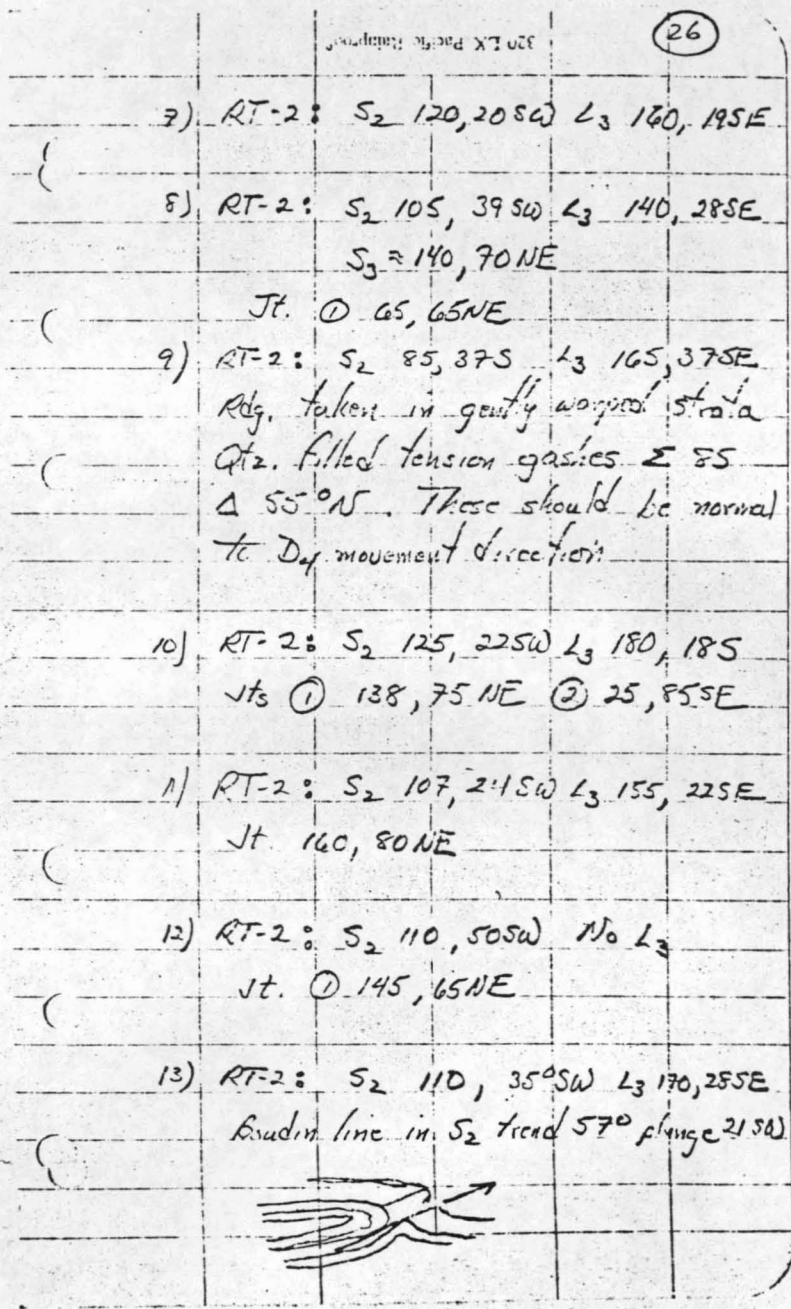 320 LX Pacific Rainproof
26
7) RT-2: S2 120, 20SW L3 160, 19SE
8) RT-2: S2 105, 39SW L3 140, 28SE
S3 ≈ 140, 70NE
Jt. ① 65, 65NE
9) RT-2: S2 85, 37S L3 165, 37SE
Rdg. taken in gently warped strata
Qtz. filled tension gashes Σ 85
Δ 55°N. These should be normal
to D4 movement direction
10) RT-2: S2 125, 22SW L3 180, 18S
Jts ① 138, 75NE ② 25, 85SE
11) RT-2: S2 107, 24SW L3 155, 22SE
Jt. 160, 80NE
12) RT-2: S2 110, 50SW No L3
Jt. ① 145, 65NE
13) RT-2: S2 110, 35°SW L3 170, 28SE
Boudin line in S2 trend 57° plunge 21SW